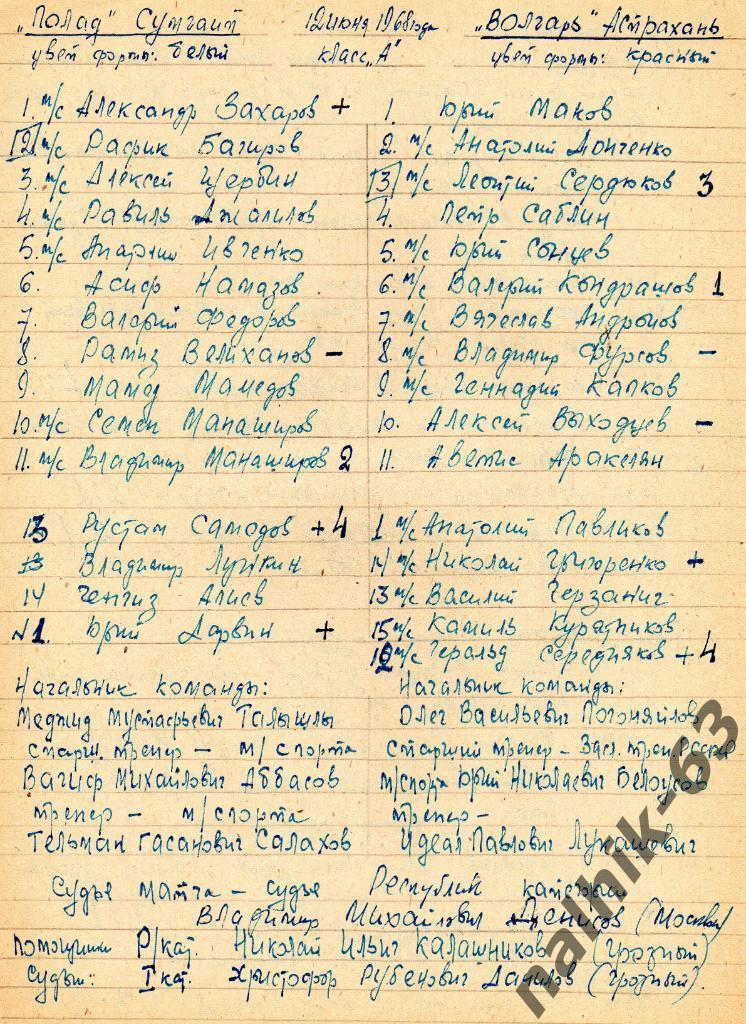 "Полад" Сумгаит 12 июня 1968 года "Волгарь" Астрахань
цвет формы: белый класс "А" цвет формы: красный
1. м/с Александр Захаров + 1. Юрий Маков
2. м/с Рафик Багиров 2. м/с Анатолий Донченко
3. м/с Алексей Щербин 3 м/с Леонтий Сердюков 3
4. м/с Равиль Джалилов 4. Петр Саблин
5. м/с Анатолий Ивченко 5. м/с Юрий Сонцев
6. Асиф Намазов 6. м/с Валерий Кондрашов 1
7. Валерий Федоров 7. м/с Вячеслав Андронов
8. Рамиз Велиханов – 8. м/с Владимир Фурсов –
9. Мамед Мамедов 9. м/с Геннадий Капков
10. м/с Семен Манаширов 10. Алексей Выходцев –
11. м/с Владимир Манаширов 2 11. Аветис Аракелян
13 Рустам Самедов + 4 1 м/с Анатолий Павликов
13 Владимир Лункин 14 м/с Николай Григоренко +
14 Ченгиз Алиев 13 м/с Василий
1. Юрий Дарвин + 15 м/с Камиль Курятников
12 м/с Геральд Середняков + 4
Начальник команды: Начальник команды:
Меджид Мустафьевич Талышлы Олег Васильевич Погоняйлов
старш. тренер – м/спорта старший тренер – Засл. трен. РСФСР
Вагиф Михайлович Аббасов м/спорта Юрий Николаевич Белоусов
тренер – м/спорта тренер –
Тельман Гасанович Салахов Идеал Павлович Лукашович
Судья матча – судья Республик категории
Владимир Михайлович Денисов (Москва)
Помощники Р/кат. Николай Ильич Калашников (Грозный)
судьи: I кат. Христофор Рубенович Данилов (Грозный).
nalnik-63